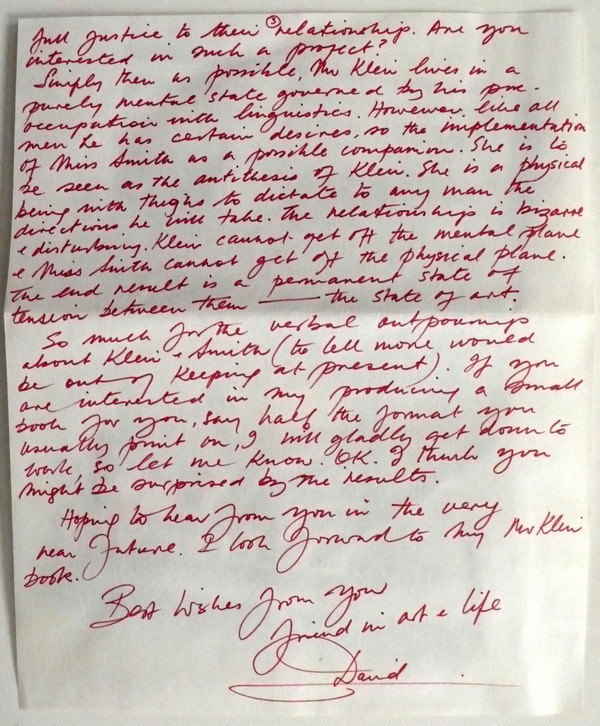 ③
full justice to their relationship. Are you
interested in such a project?
Simply then as possible, Mr Klein lives in a
purely mental state governed by his pre-
occupation with linguistics. However, like all
men he has certain desires, so the implementation
of Miss Smith as a possible companion. She is to
be seen as the antithesis of Klein. She is a physical
being with thighs to dictate to any man the
directions he will take. The relationships is bizarre
& disturbing. Klein cannot get off the mental plane
& Miss Smith cannot get off the physical plane.
The end result is a permanent state of
tension between them — the state of art.
So much for the verbal outpourings
about Klein & Smith (to tell more would
be out of keeping at present). If you
are interested in my producing a small
book for you, say half the format you
usually print on, I will gladly get down to
work, so let me know. OK. I think you
might be surprised by the results.
Hoping to hear from you in the very
near future. I look forward to my Mr Klein
book.
Best wishes from your
friend in art & life
David